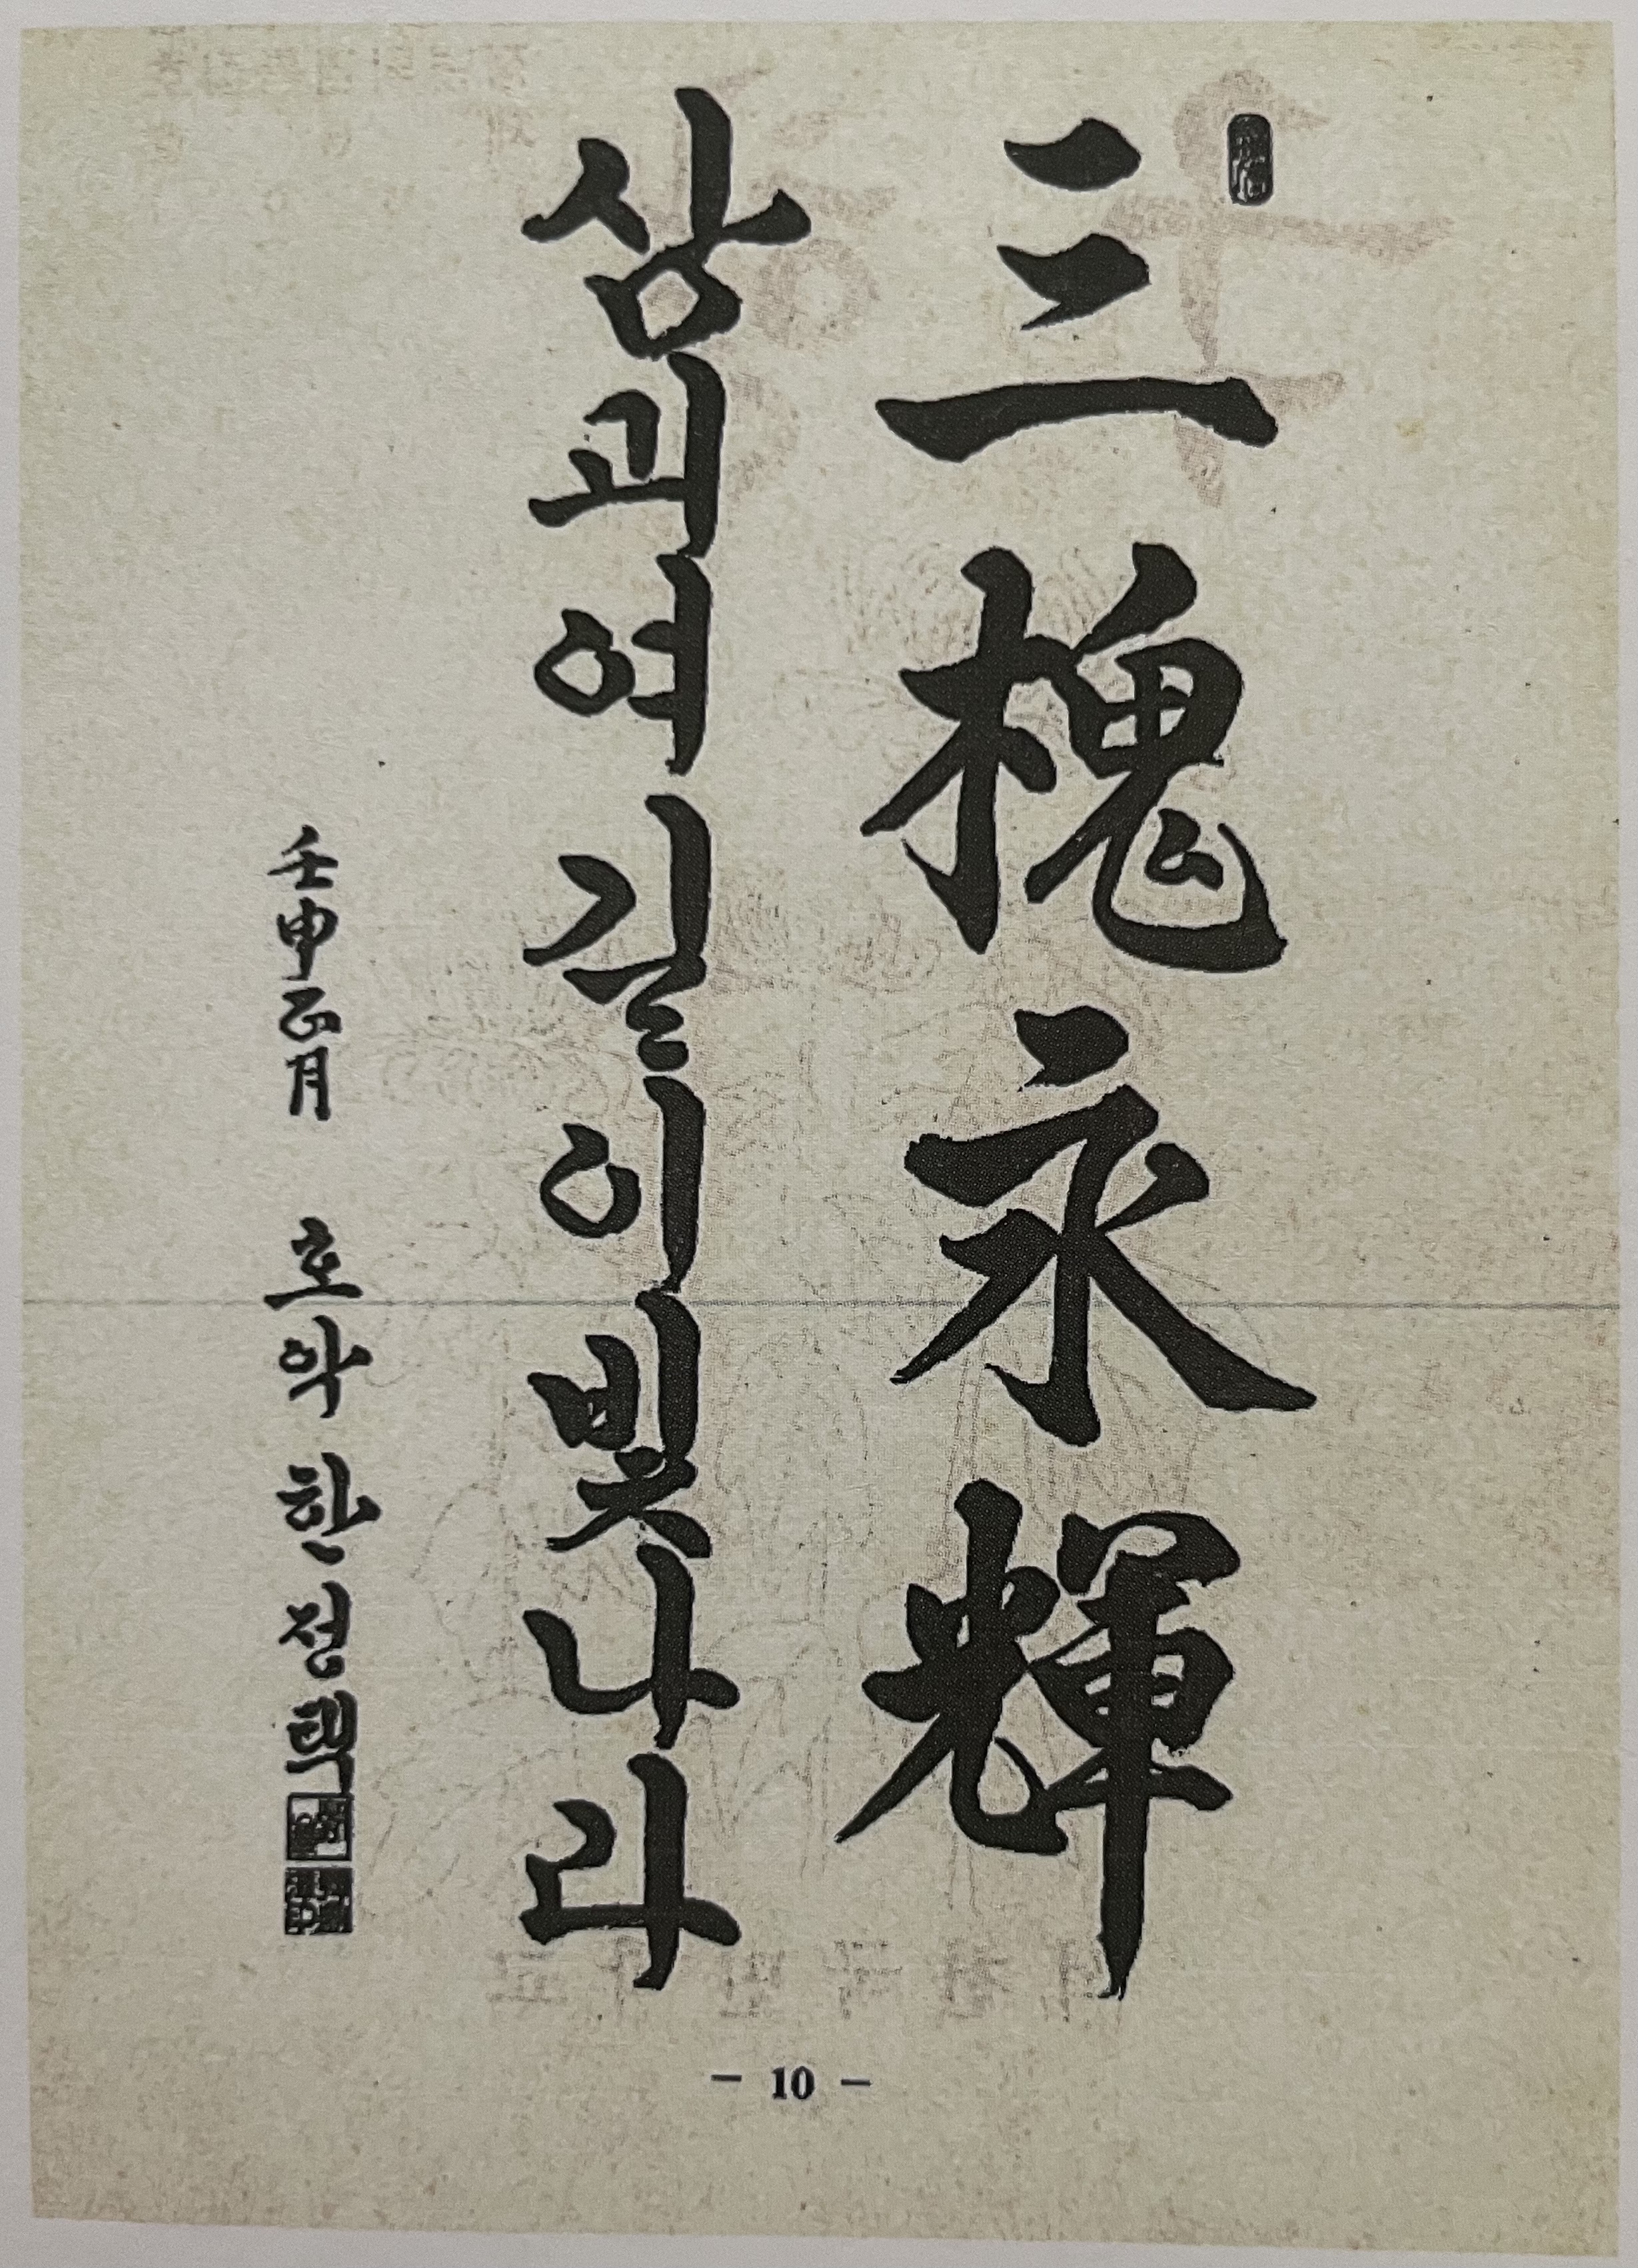 三槐永輝
삼괴여 길이 빛나라
壬申正月 호악 한정택
- 10 -